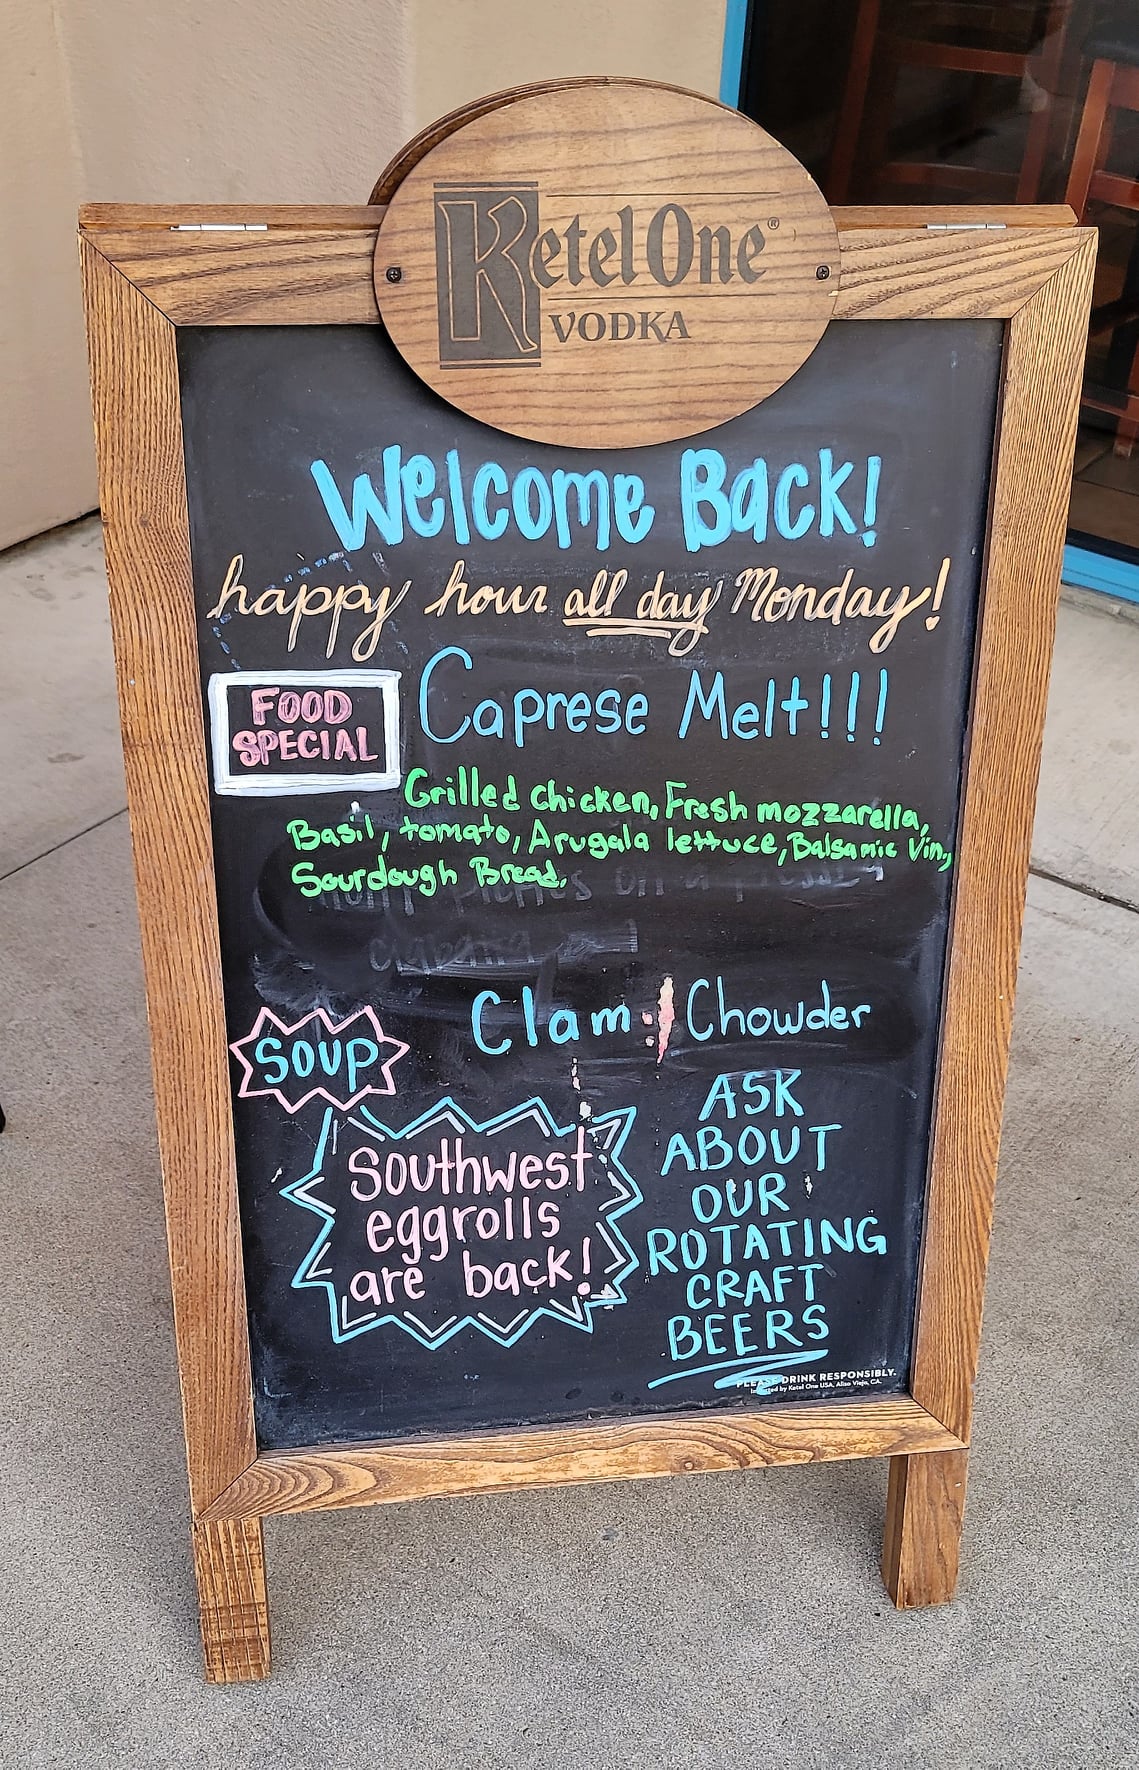 Ketel One®
VODKA
Welcome Back!
happy hour all day Monday!
FOOD
SPECIAL
Caprese Melt!!!
Grilled chicken, Fresh mozzarella,
Basil, tomato, Arugala lettuce, Balsamic Vin,
Sourdough Bread.
on a
SOUP
Clam Chowder
Southwest
eggrolls
are back!
ASK
ABOUT
OUR
ROTATING
CRAFT
BEERS
PLEASE DRINK RESPONSIBLY.
Imported by Ketel One USA, Aliso Viejo, CA.